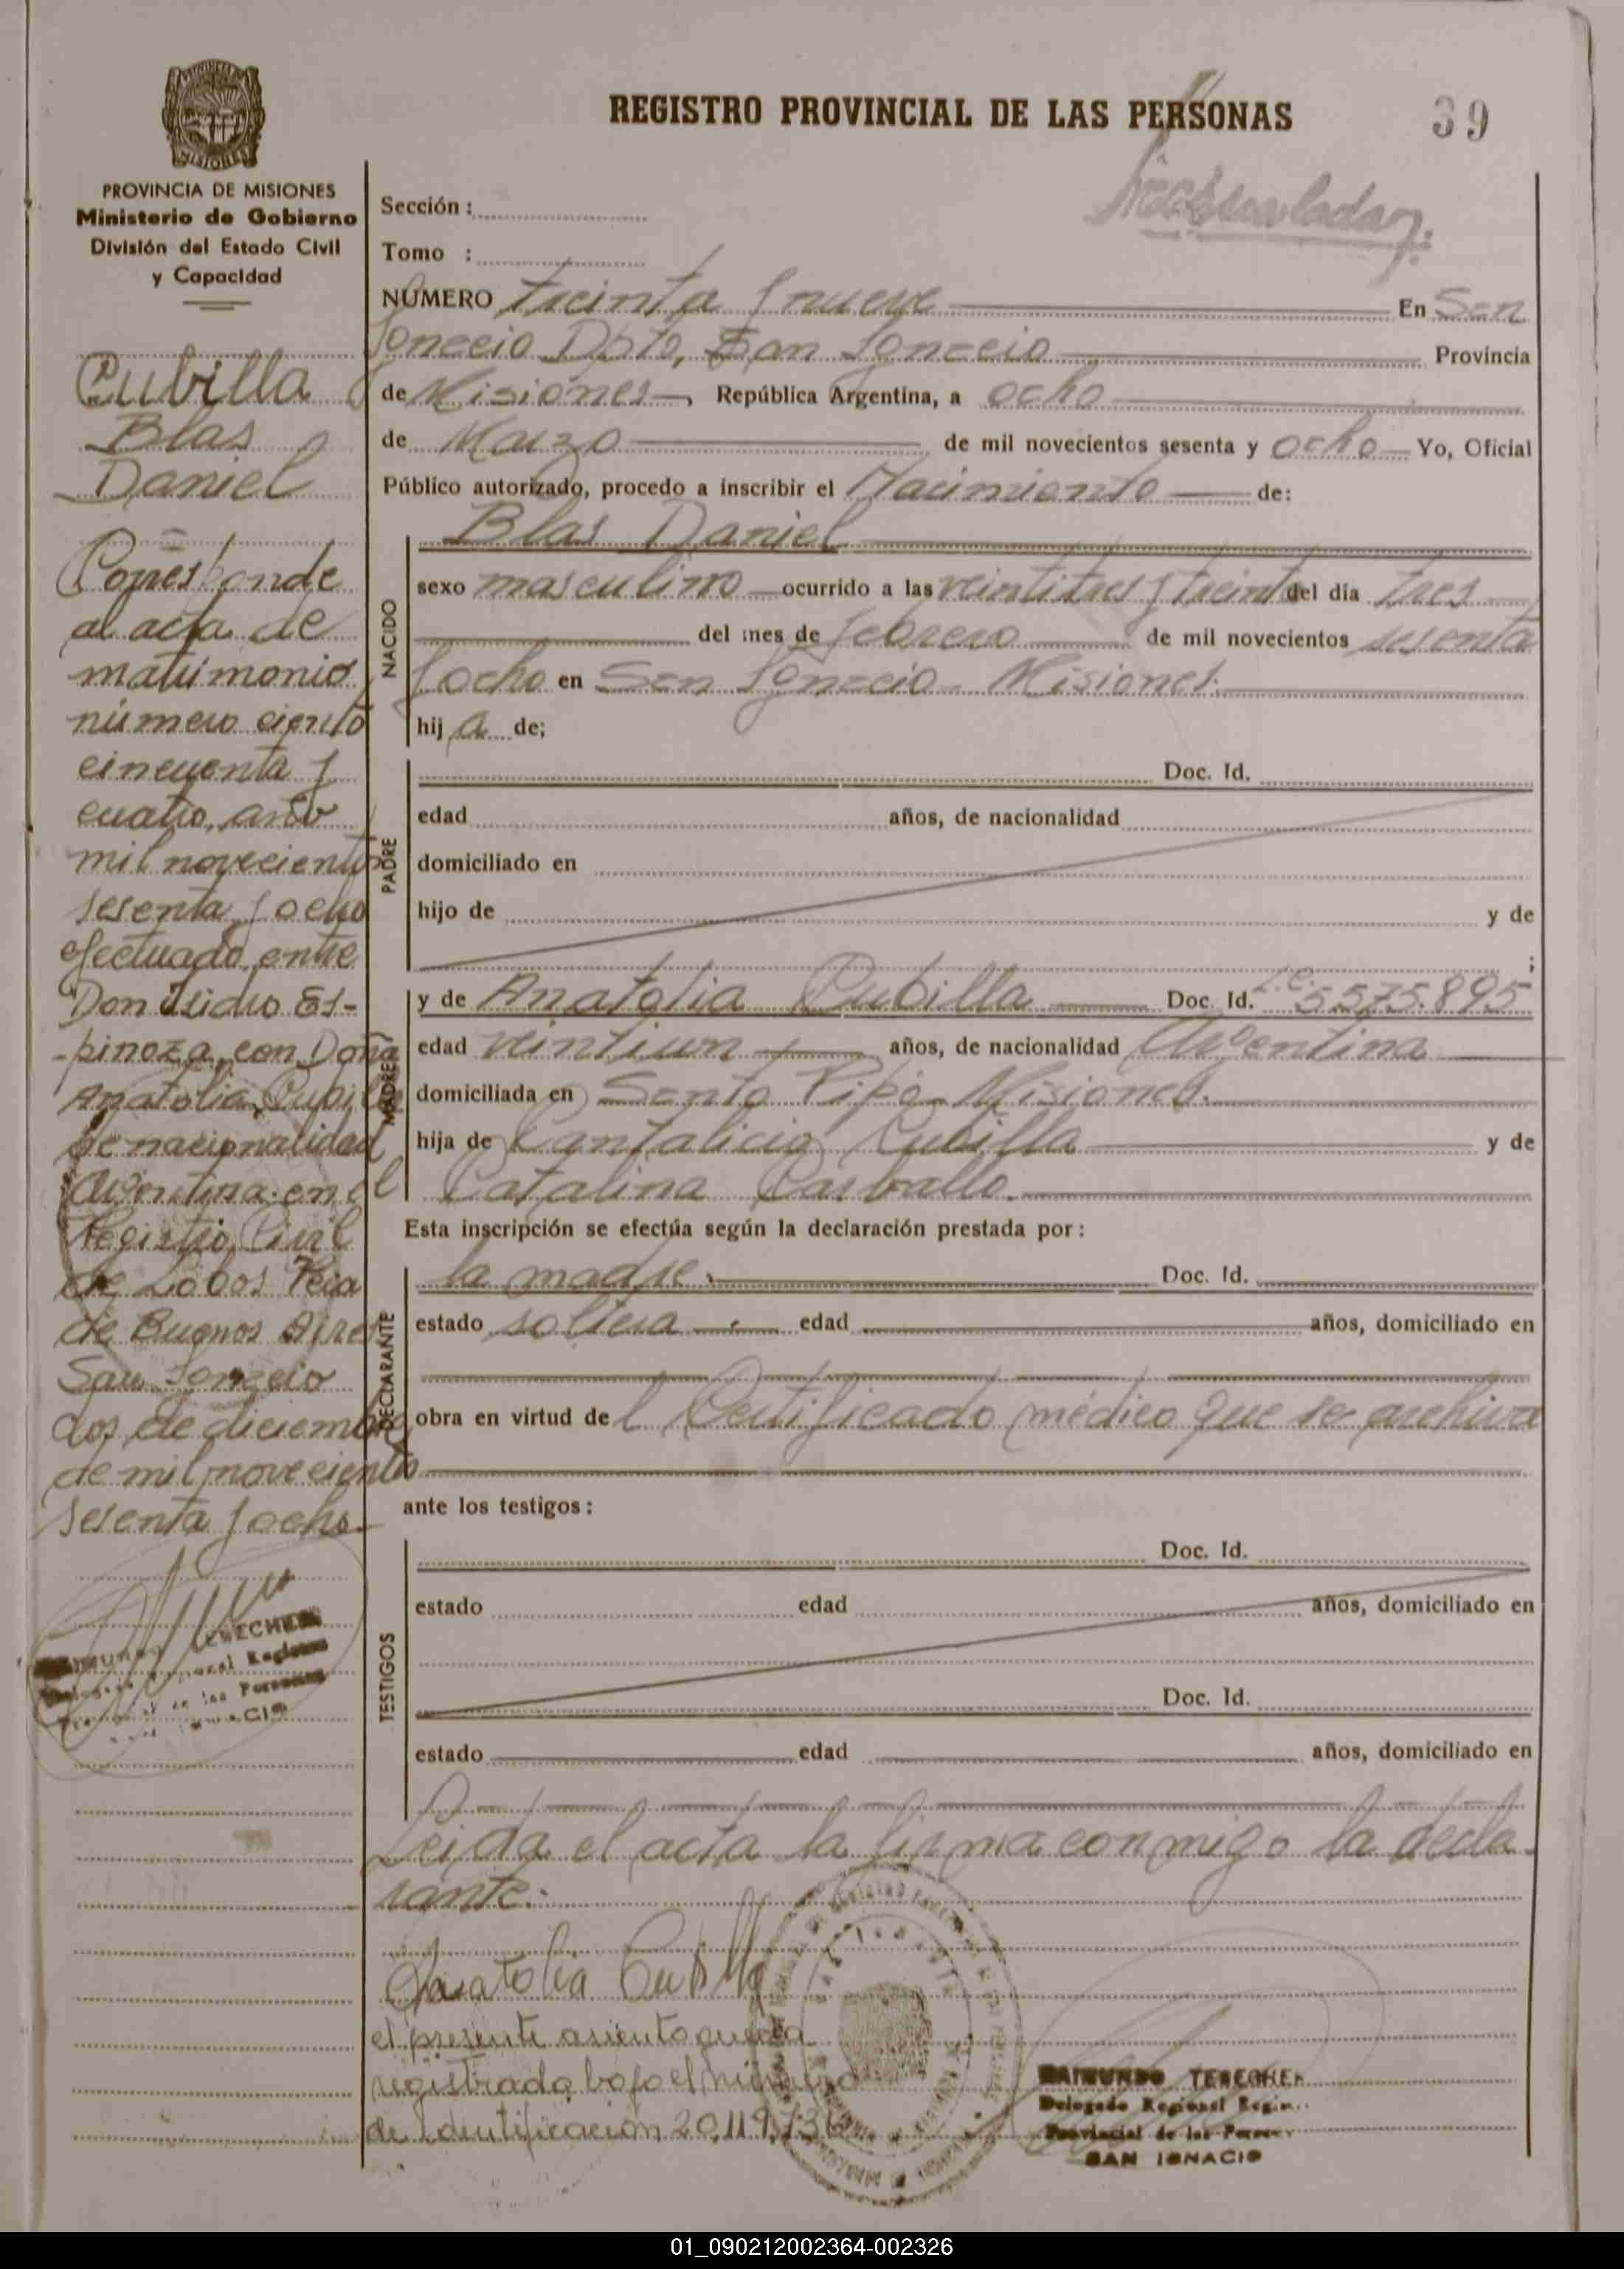 REGISTRO PROVINCIAL DE LAS PERSONAS
39
MISIONES
PROVINCIA DE MISIONES
Ministerio de Gobierno
División del Estado Civil
y Capacidad
Cubilla
Blas
Daniel
Corresponde
al acta de
matrimonio
número ciento
cincuenta y
cuatro, año
mil novecientos
sesenta y ocho
efectuado entre
Don Isidro Es-
-pinoza, con Doña
Anatolia Cubilla
de nacionalidad
Argentina en el
Registro Civil
de Lobos Pcia
de Buenos Aires
San Ignacio
dos de diciembre
de mil novecientos
sesenta y ocho
Sección :
Tomo :
NÚMERO treinta y nueve En San
Ignacio Dpto, San Ignacio Provincia
de Misiones, República Argentina, a ocho
de Marzo de mil novecientos sesenta y ocho Yo, Oficial
Público autorizado, procedo a inscribir el Nacimiento de:
NACIDO
Blas Daniel
sexo masculino ocurrido a las veintitres y treinta del día tres
del mes de febrero de mil novecientos sesenta
y ocho en San Ignacio - Misiones.
hij a de;
PADRE
Doc. Id.
edad años, de nacionalidad
domiciliado en
hijo de y de
;
MADRE
y de Anatolia Cubilla Doc. Id. L.C. 5575.895
edad veintiun años, de nacionalidad Argentina
domiciliada en Santo Pipó - Misiones.
hija de Cantalicio Cubilla y de
Catalina Carballo.
Esta inscripción se efectúa según la declaración prestada por:
DECLARANTE
la madre Doc. Id.
estado soltera edad años, domiciliado en
obra en virtud de l Certificado médico que se archiva
ante los testigos:
TESTIGOS
Doc. Id.
estado edad años, domiciliado en
Doc. Id.
estado edad años, domiciliado en
Leida el acta la firma conmigo la decla-
rante.
Anatolia Cubilla
el presente asiento queda
registrado bajo el número
de identificación
RAIMUNDO TERECHEN
Delegado Regional Regis..
Provincial de las Person
SAN IGNACIO
01_090212002364-002326